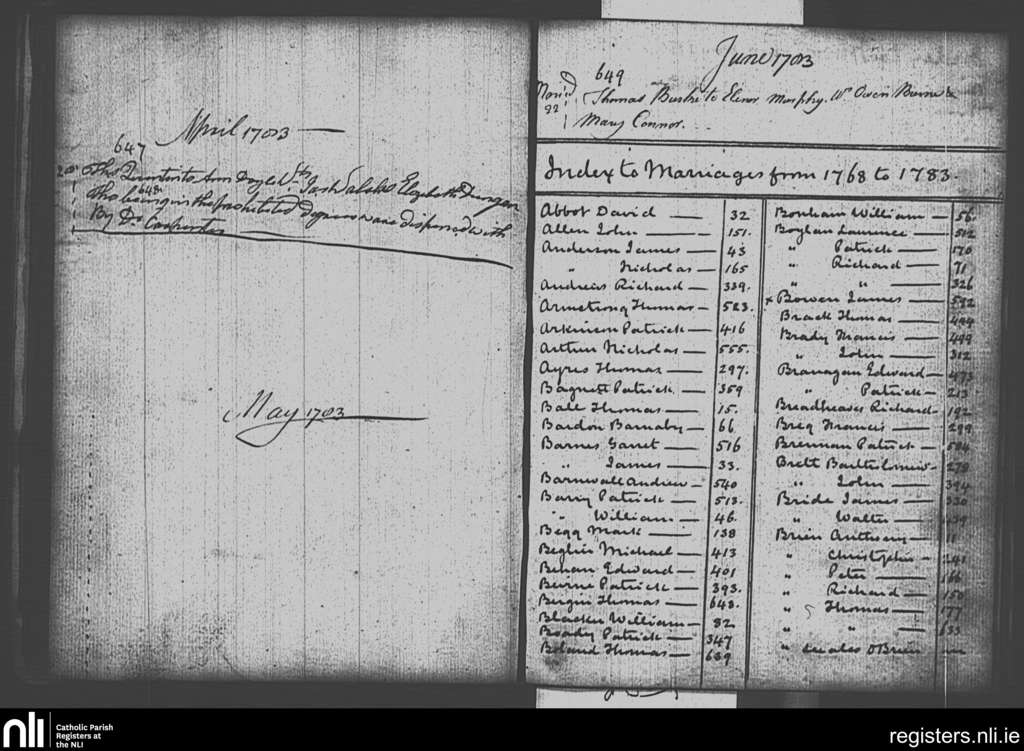 April 1783
647
20th Thos Quinton to Ann Doyle Wts Elizabeth Dungan
648
The being in the prohibited degrees were dispensed with
By Dr Carpenter
May 1783
June 1783
649
22 Thomas Burke to Elenor Morphy. Ws Owen Burne &
Mary Connor.
Index to Marriages from 1768 to 1783.
Abbot David — 32
Allen John — 151.
Anderson James — 43
" Nicholas — 165
Andrews Richard — 339.
Armstrong Thomas — 523.
Arkinson Patrick — 416
Arthur Nicholas — 555.
Ayres Thomas — 297.
Bagnett Patrick — 359
Ball Thomas — 15.
Bardon Barnaby — 66
Barnes Garret — 516
" James — 33.
Barnwall Andrew — 540
Barry Patrick — 513.
" William — 46.
Begg Mark — 138
Beghin Michael — 413
Behan Edward — 401
Beirne Patrick — 393.
Bergin Thomas — 643.
Blacker William — 82
Boady Patrick — 347
Boland Thomas — 639
Bonham William — 56.
Boylan Laurence — 512
" Patrick — 170
" Richard — 71
" " — 326
x Bowen James — 592
Brack Thomas — 494
Brady Francis — 499
" John — 312
Branagan Edward — 473
" Patrick — 213
Breadheaves Richard — 192
Breg Francis — 299
Brennan Patrick — 584
Brett Bartholomew — 278
" John — 394
Bride James — 330
" Walter —
Brien Anthony — 11
" Christopher — 241
" Peter — 166
" Richard — 150
" Thomas — 177
" " — 633
" see also O'Brien
nli
Catholic Parish
Registers at
the NLI
registers.nli.ie